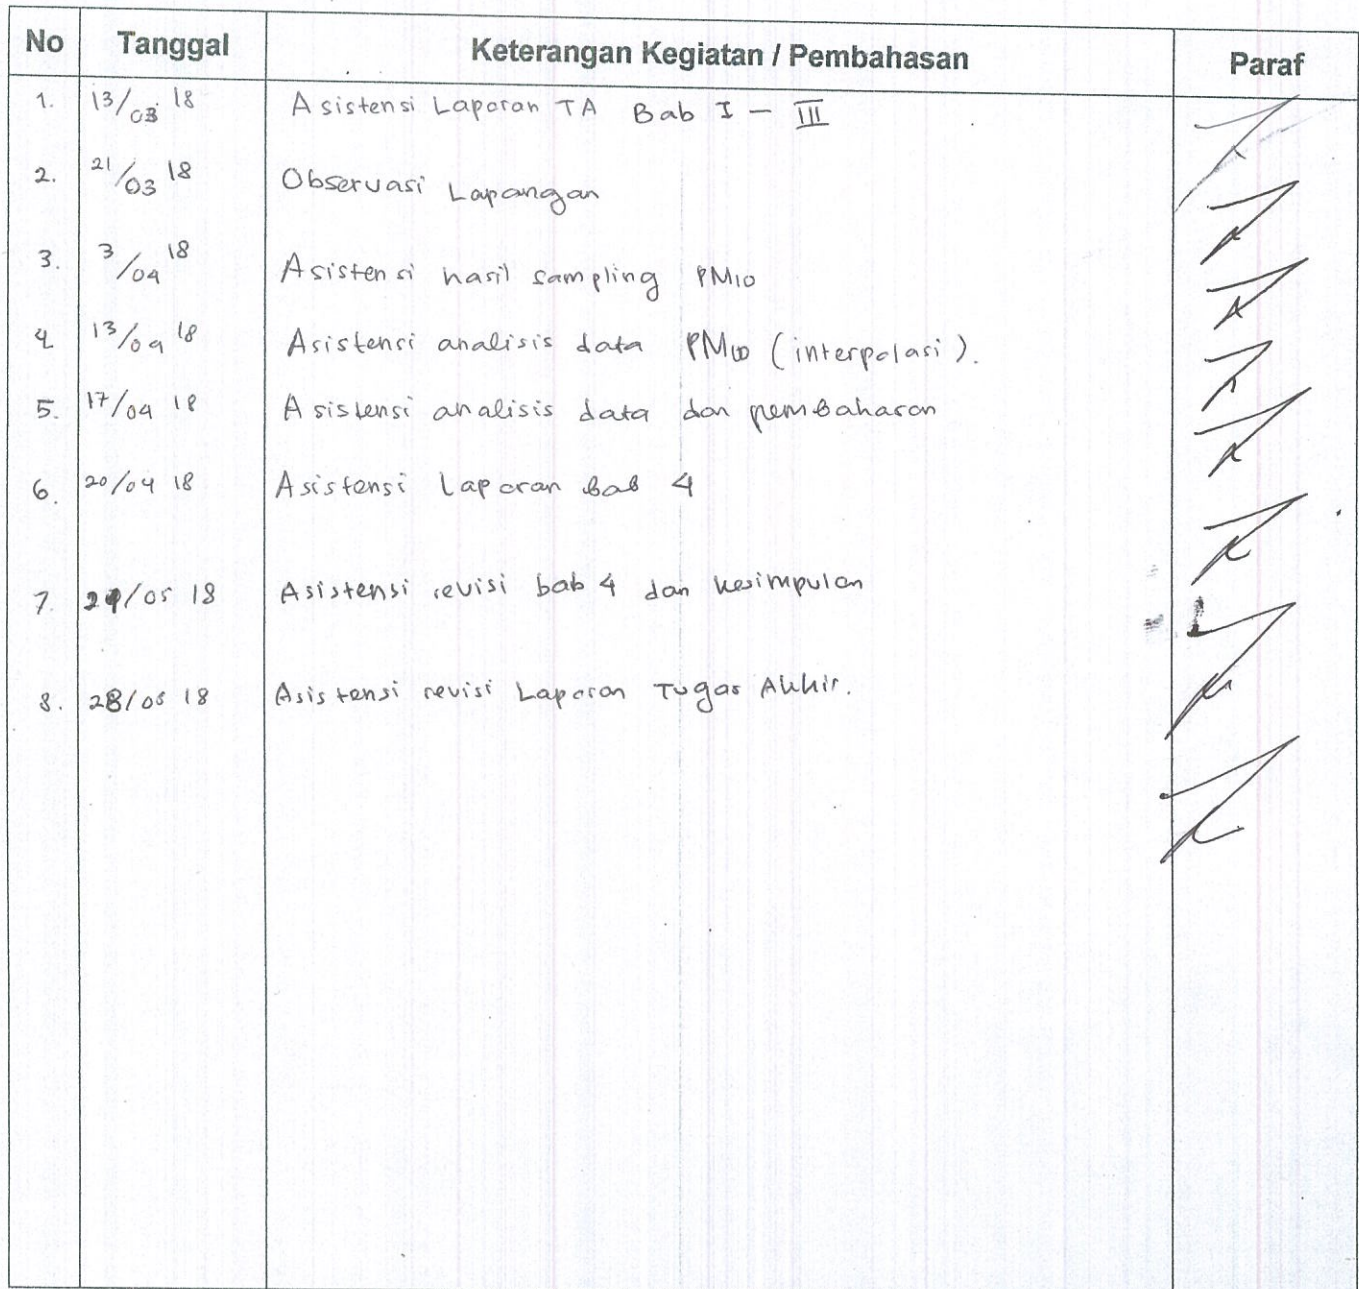 No Tanggal Keterangan Kegiatan / Pembahasan Paraf
1. 13/03 18 Asistensi Laporan TA Bab I - III
2. 21/03 18 Observasi Lapangan
3. 3/04 18 Asistensi hasil sampling PM10
4 13/04 18 Asistensi analisis data PM10 (interpolasi).
5. 17/04 18 Asistensi analisis data dan pembahasan
6. 20/04 18 Asistensi Laporan bab 4
7. /05 18 Asistensi revisi bab 4 dan kesimpulan
8. 28/05 18 Asistensi revisi Laporan Tugas Akhir.